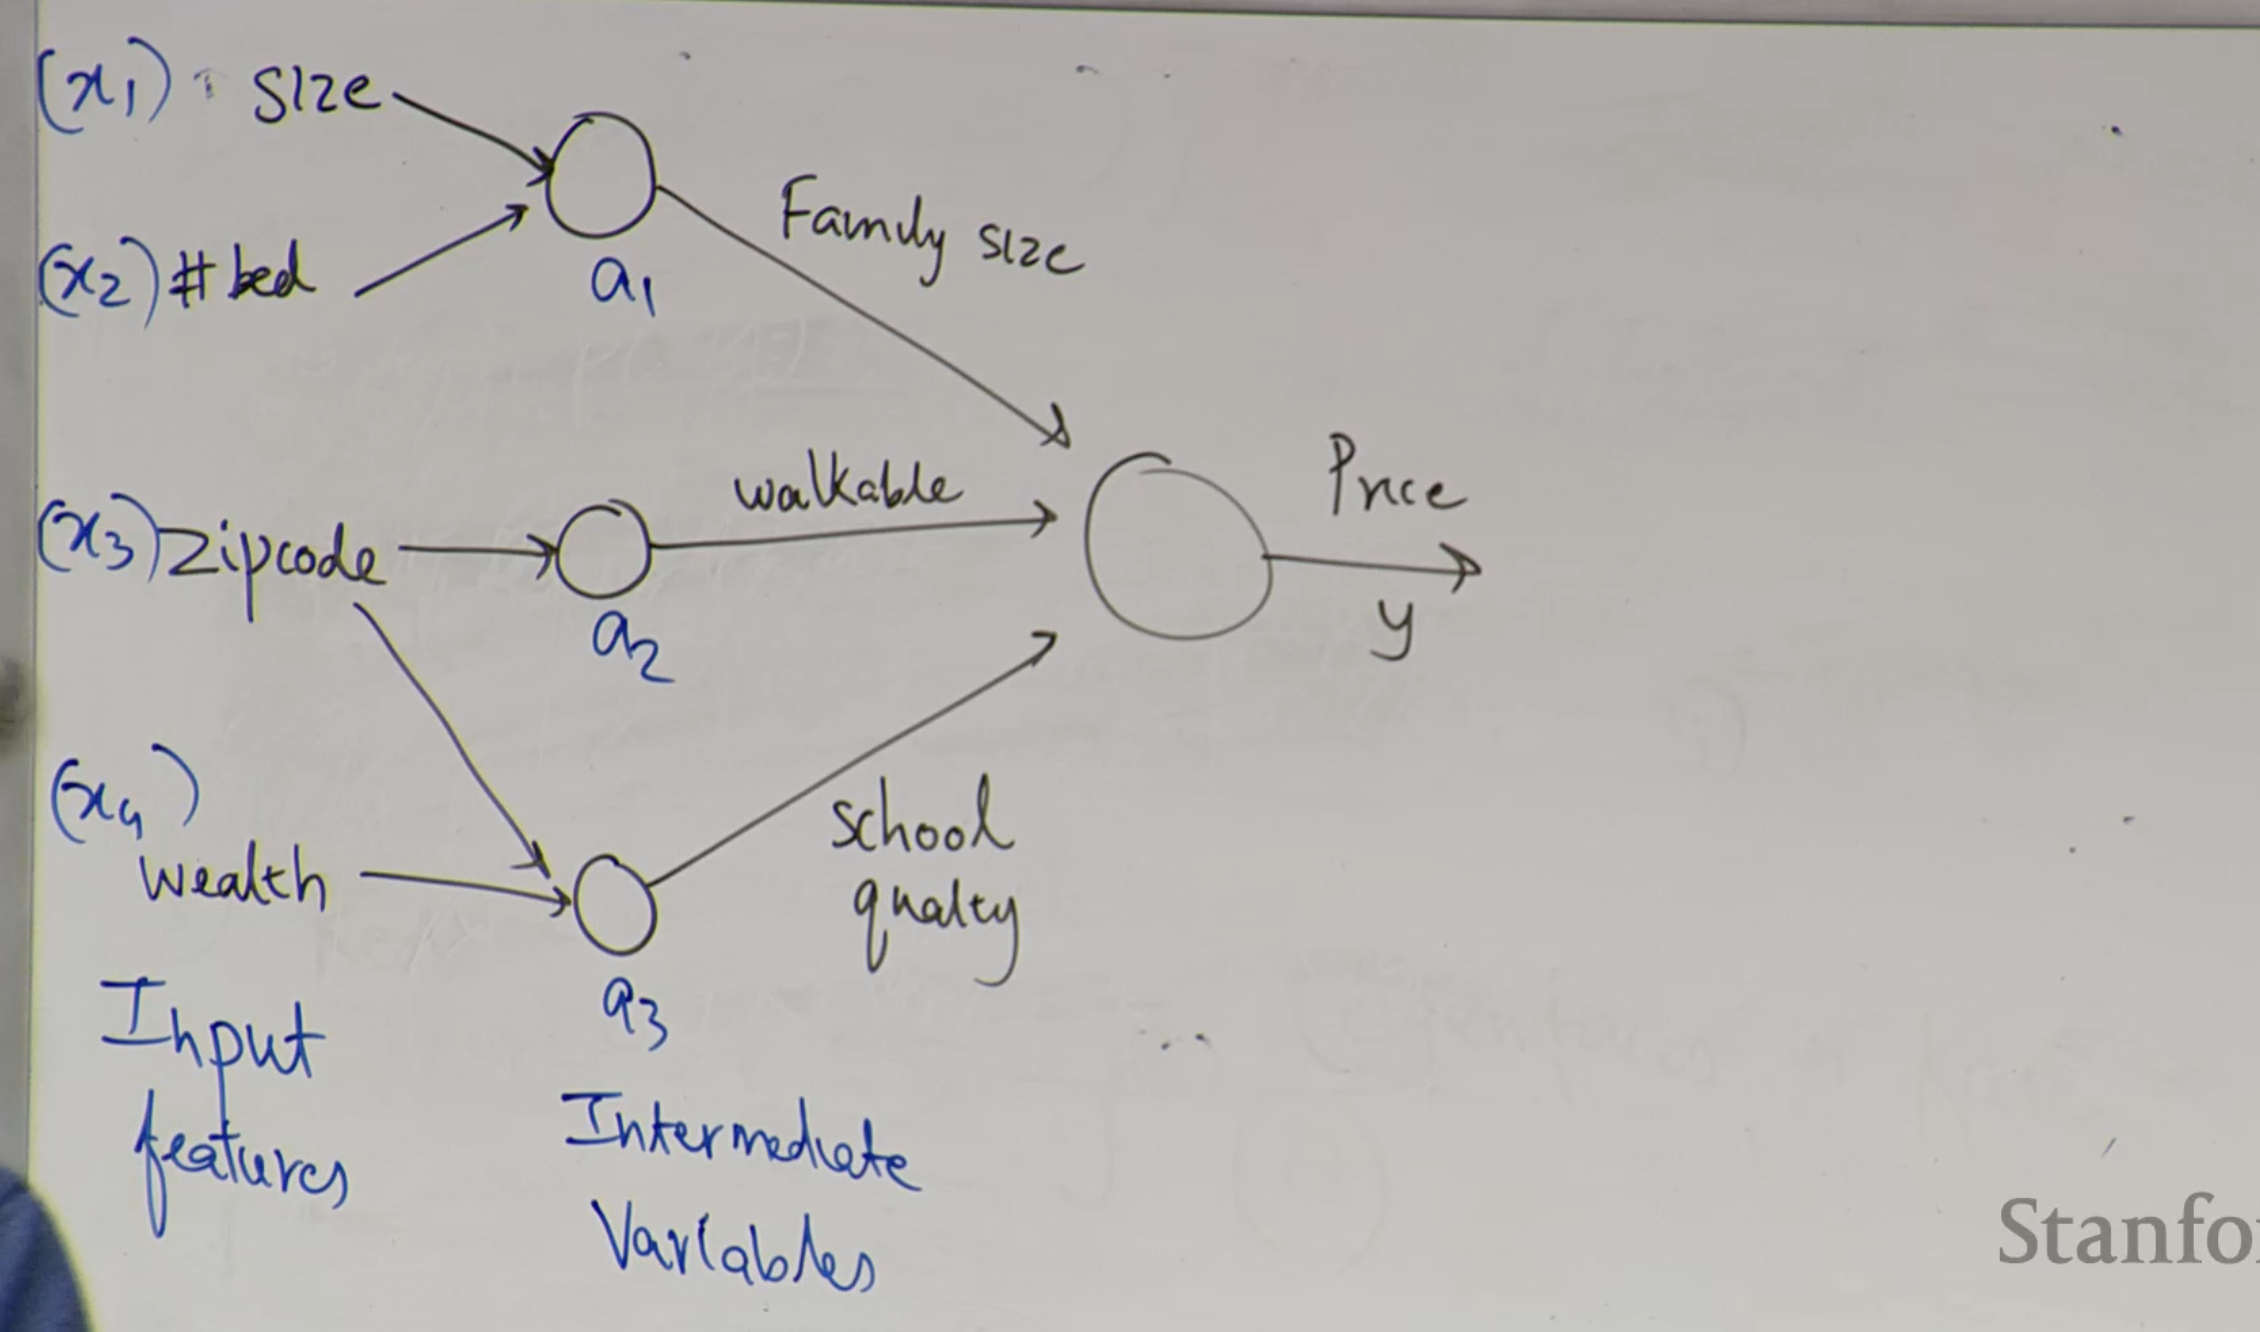 (x1) size
(x2) #bed
a1
Family size
(x3) zipcode
a2
walkable
Price
y
(x4)
wealth
a3
school
qualty
Input
features
Intermediate
Variables
Stanfo